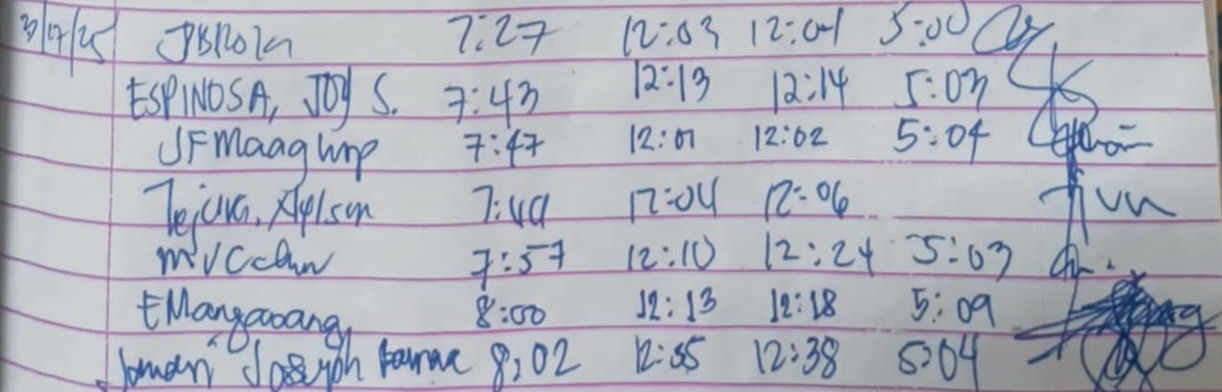 3/17/25 JBRola 7:27 12:03 12:04 5:00
ESPINOSA, JOY S. 7:43 12:13 12:14 5:03
JFMaaghup 7:47 12:01 12:02 5:04
Tejura, 7:49 12:04 12:06
7:57 12:10 12:24 5:03
EMangaoang 8:00 12:13 12:18 5:09
Joseph 8:02 12:35 12:38 5:04